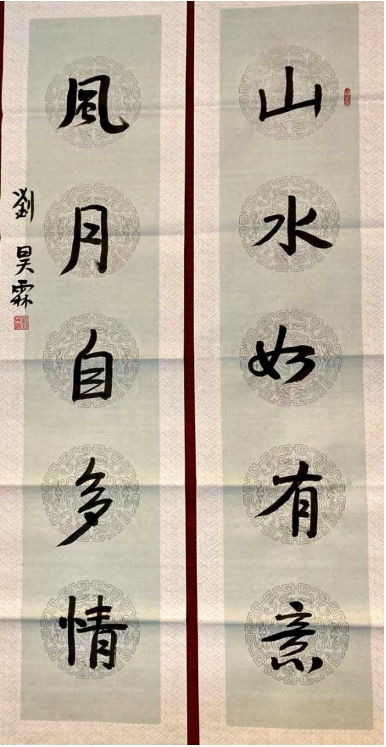 山水如有意
風月自多情
劉昊霖